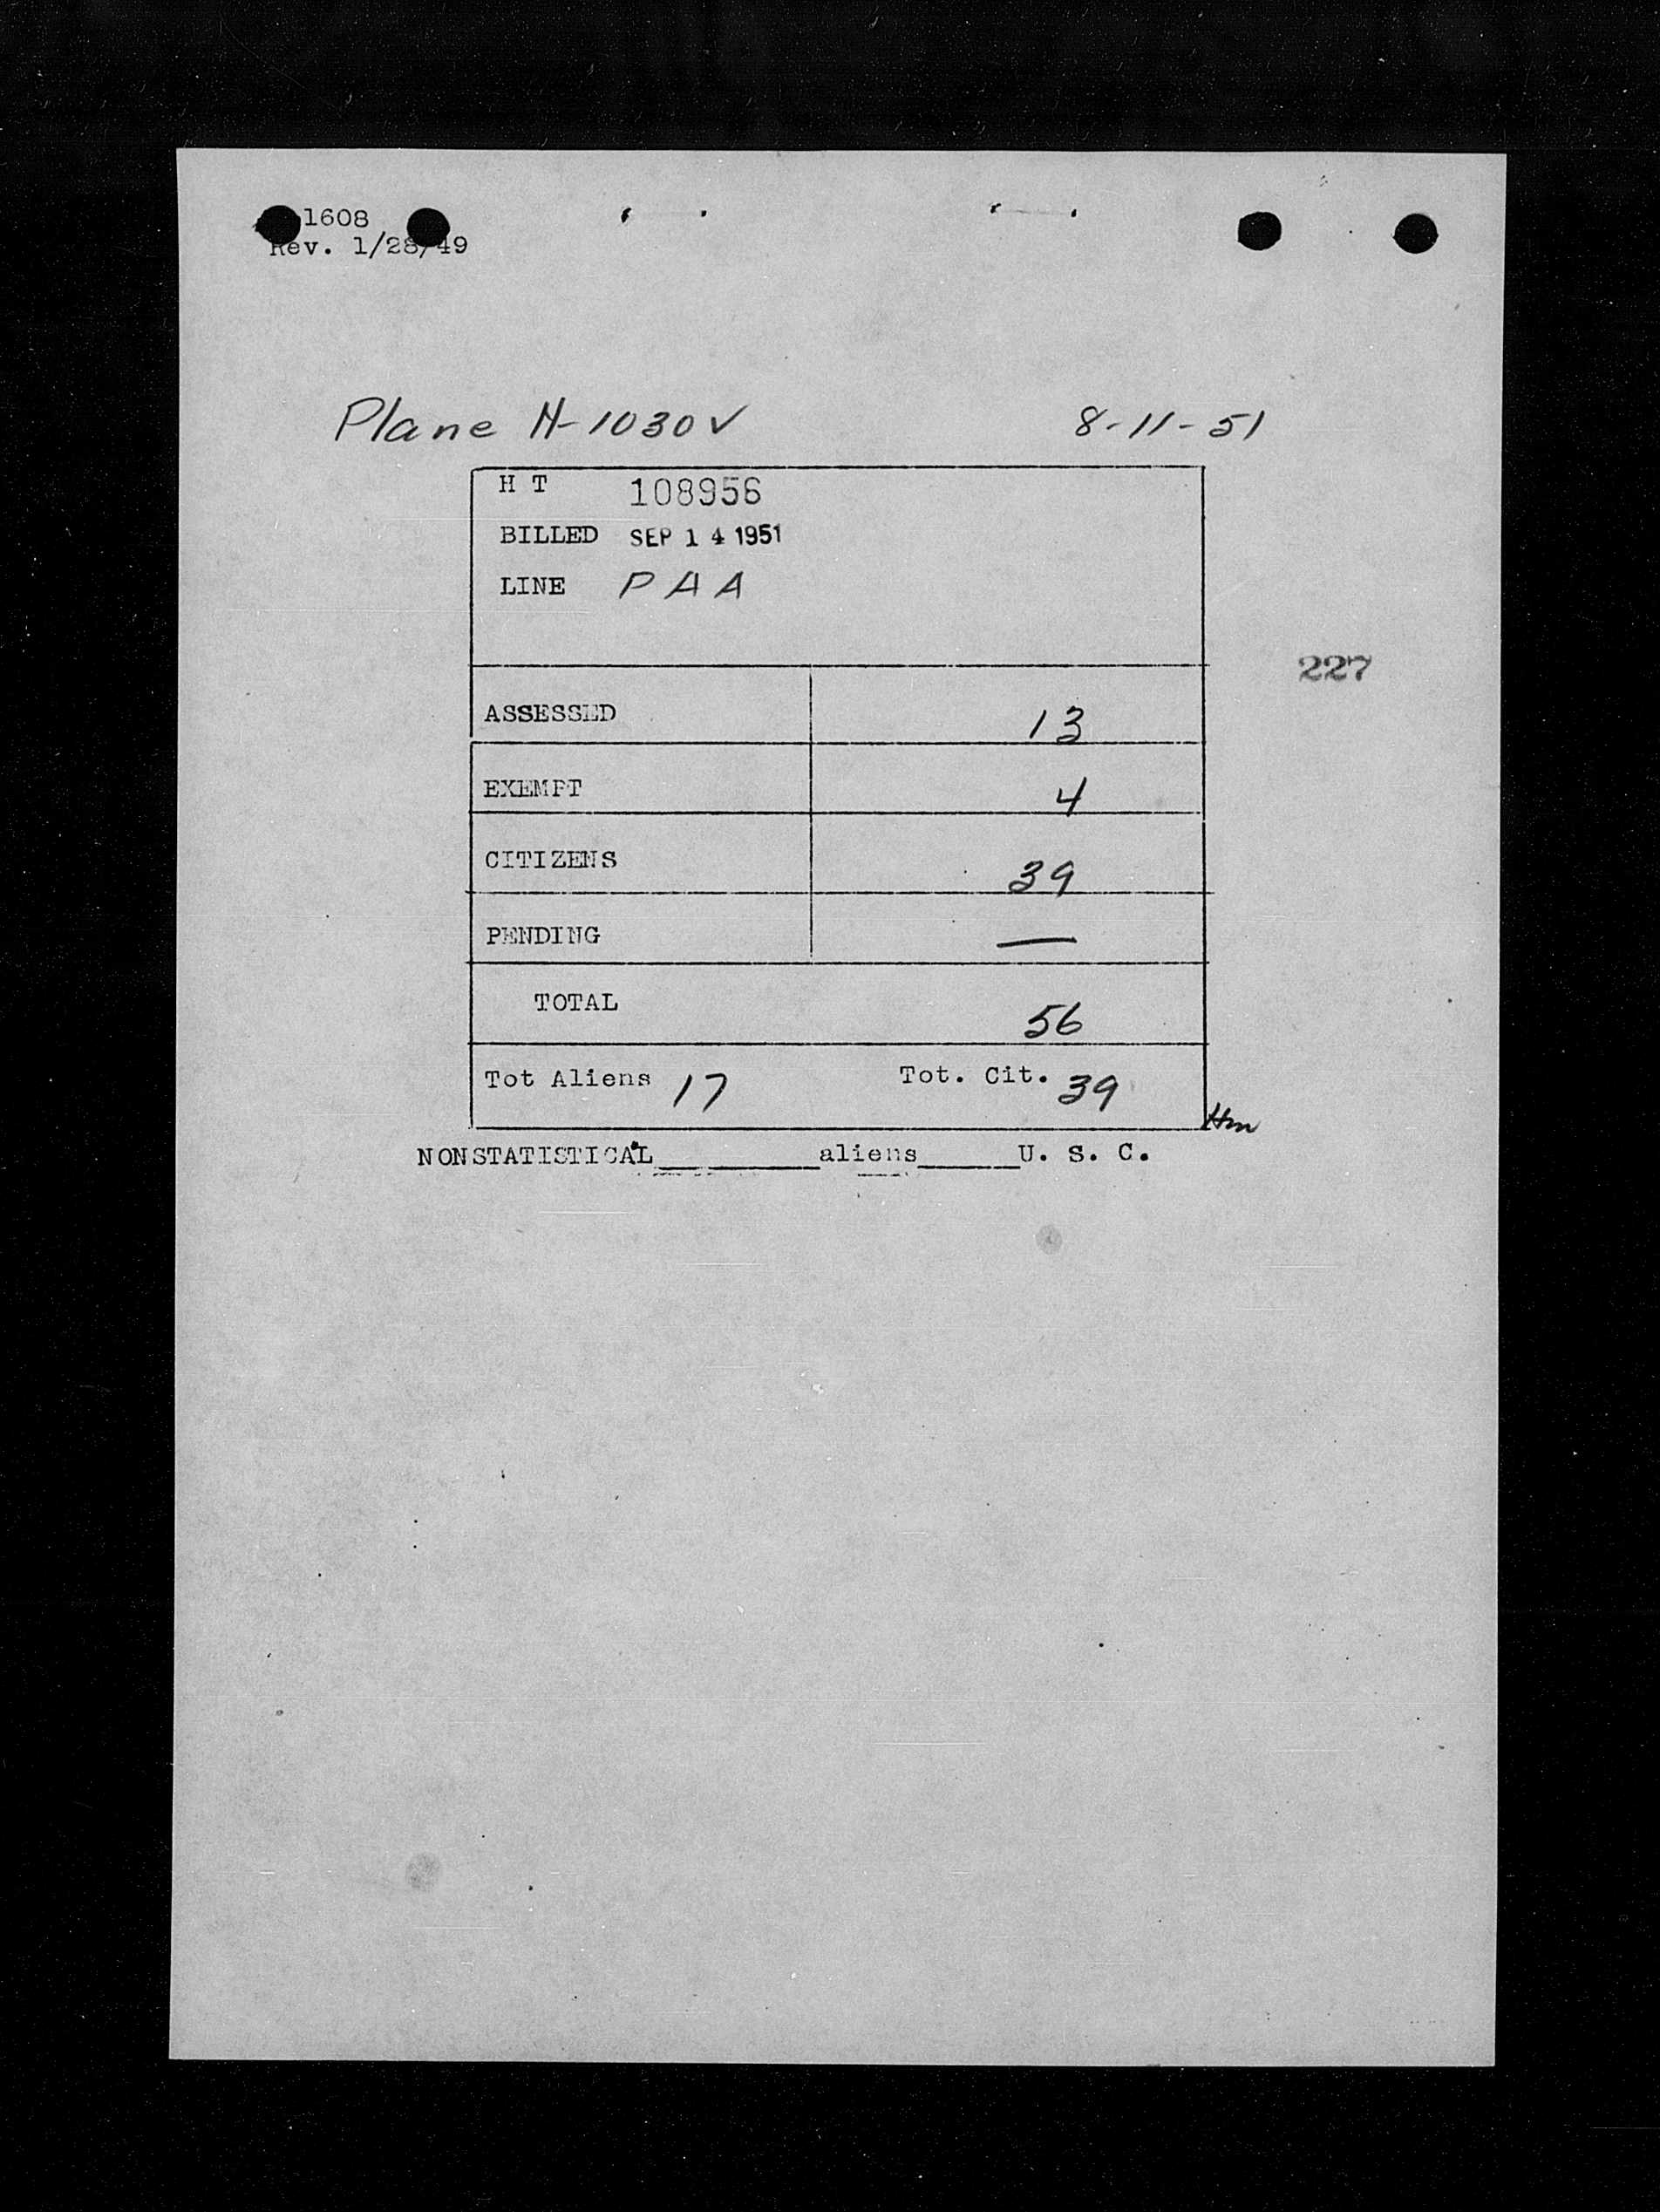 1608
Rev. 1/28/49
Plane N-1030V 8-11-51
H T 108956
BILLED SEP 14 1951
LINE PAA
227
ASSESSED 13
EXEMPT 4
CITIZENS 39
PENDING —
TOTAL 56
Tot Aliens 17 Tot. Cit. 39
Hm
NONSTATISTICAL__________aliens______U. S. C.